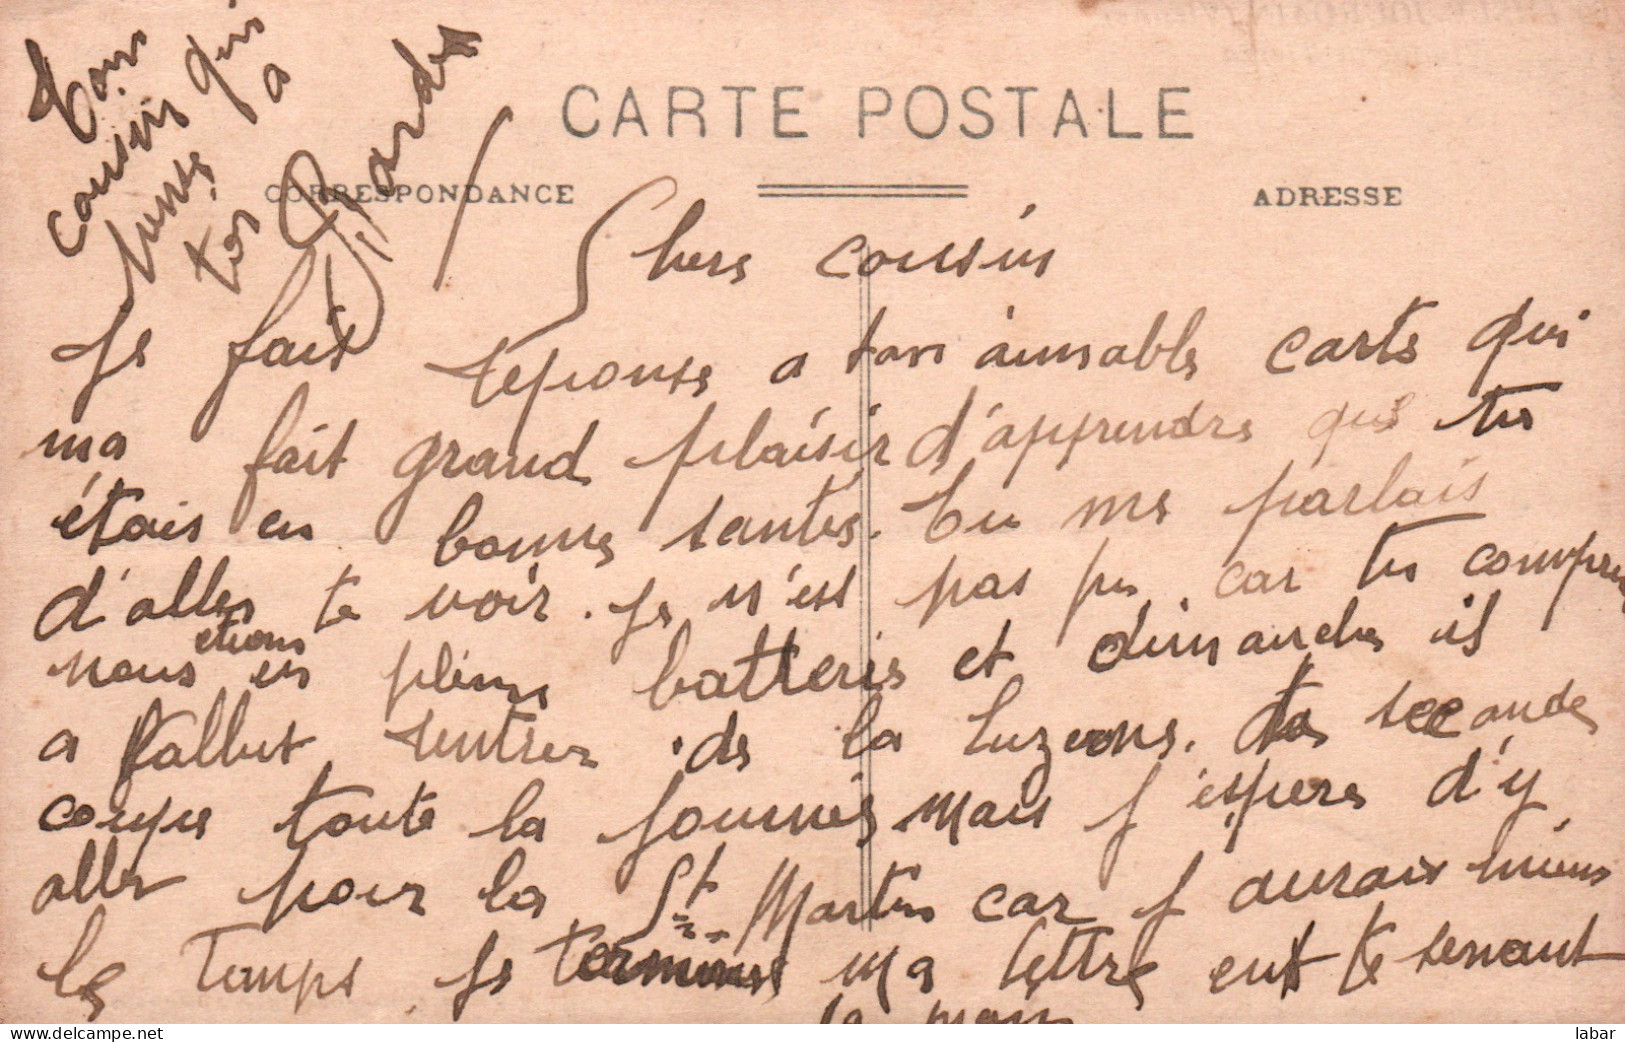 CARTE POSTALE
CORRESPONDANCE
ADRESSE
Chers cousin
Je fait reponse a ton aimable carte qui
ma fait grand plaisir d'apprendre que tu
étais en bonne santés. Tu me parlais
d'aller te voir. Je n'est pas pu car tu compre
nous etions en pleine batterie et dimanche il
a fallut rentrer de la luzerne. seconde
coupe toute la journés mais j'espere d'y
aller pour la St Martin car j aurais mieux
le temps je termine ma lettre ent te serrant
la main
Ton
cousin qui
pense a
toi
delcampe.net
labar